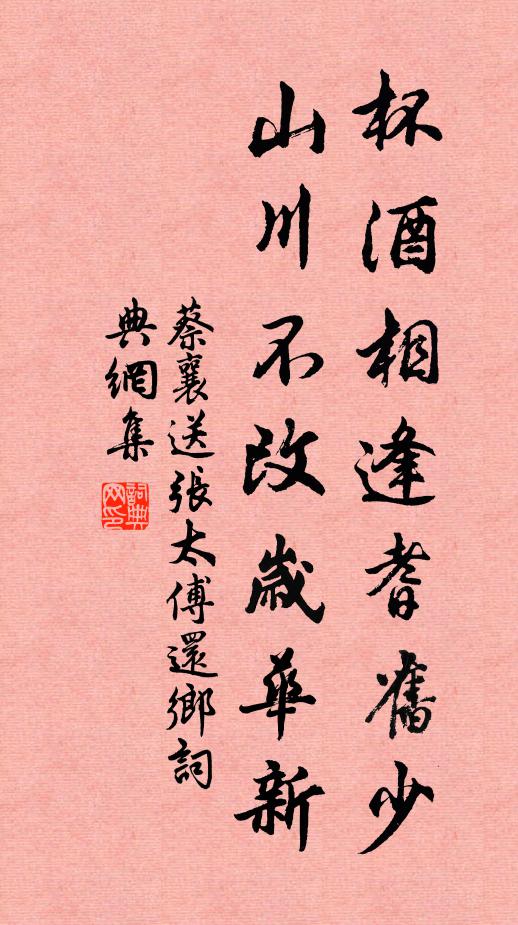 杯酒相逢耆舊少
山川不改歲華新
蔡襄送張太傅還鄉詞
典網集
詞典網印